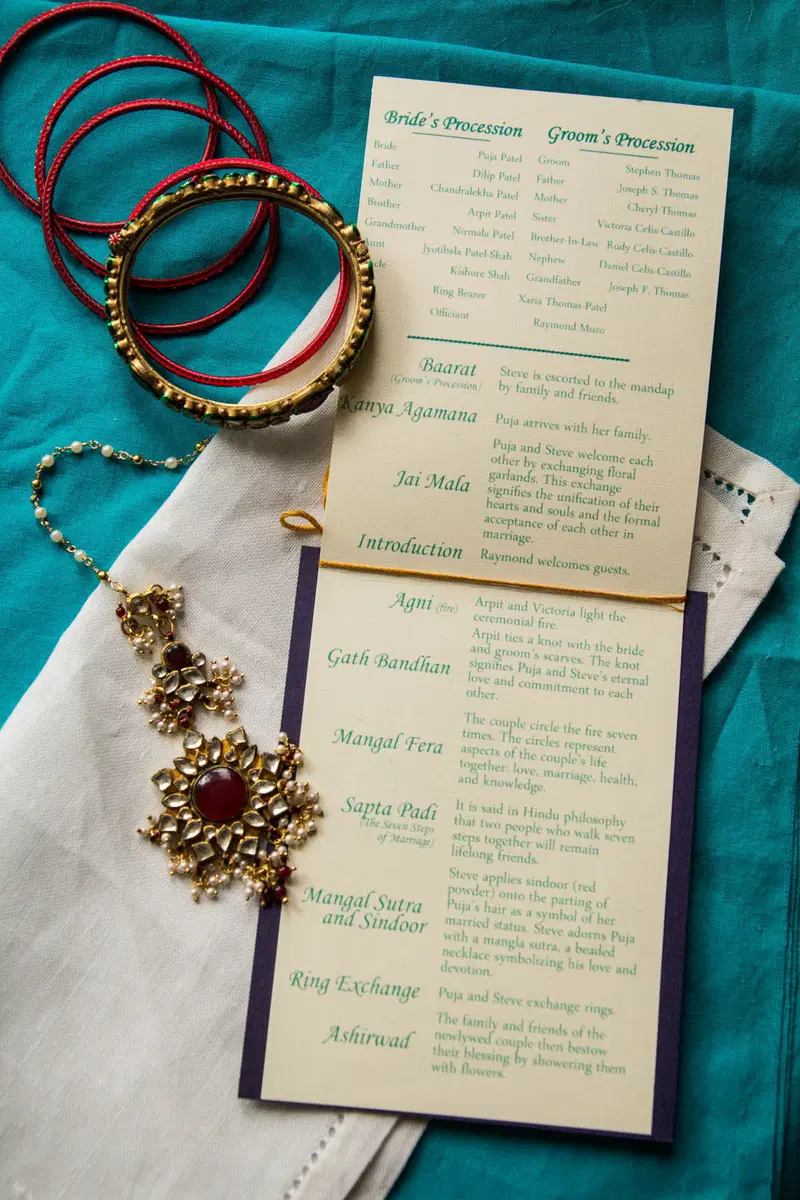 Bride's Procession
Bride Puja Patel
Father Dilip Patel
Mother Chandralekha Patel
Brother Arpit Patel
Grandmother Nirmala Patel
Aunt Jyotibala Patel-Shah
cle Kishore Shah
Groom's Procession
Groom Stephen Thomas
Father Joseph S. Thomas
Mother Cheryl Thomas
Sister Victoria Celis-Castillo
Brother-In-Law Rudy Celis-Castillo
Nephew Daniel Celis-Castillo
Grandfather Joseph F. Thomas
Ring Bearer Xaria Thomas-Patel
Officiant Raymond Muro
Baarat
(Groom's Procession)
Steve is escorted to the mandap
by family and friends.
Kanya Agamana
Puja arrives with her family.
Jai Mala
Puja and Steve welcome each
other by exchanging floral
garlands. This exchange
signifies the unification of their
hearts and souls and the formal
acceptance of each other in
marriage.
Introduction
Raymond welcomes guests.
Agni (fire)
Arpit and Victoria light the
ceremonial fire.
Gath Bandhan
Arpit ties a knot with the bride
and groom's scarves. The knot
signifies Puja and Steve's eternal
love and commitment to each
other.
Mangal Fera
The couple circle the fire seven
times. The circles represent
aspects of the couple's life
together: love, marriage, health,
and knowledge.
Sapta Padi
(The Seven Steps
of Marriage)
It is said in Hindu philosophy
that two people who walk seven
steps together will remain
lifelong friends.
Mangal Sutra
and Sindoor
Steve applies sindoor (red
powder) onto the parting of
Puja's hair as a symbol of her
married status. Steve adorns Puja
with a mangla sutra, a beaded
necklace symbolizing his love and
devotion.
Ring Exchange
Puja and Steve exchange rings.
Ashirwad
The family and friends of the
newlywed couple then bestow
their blessing by showering them
with flowers.